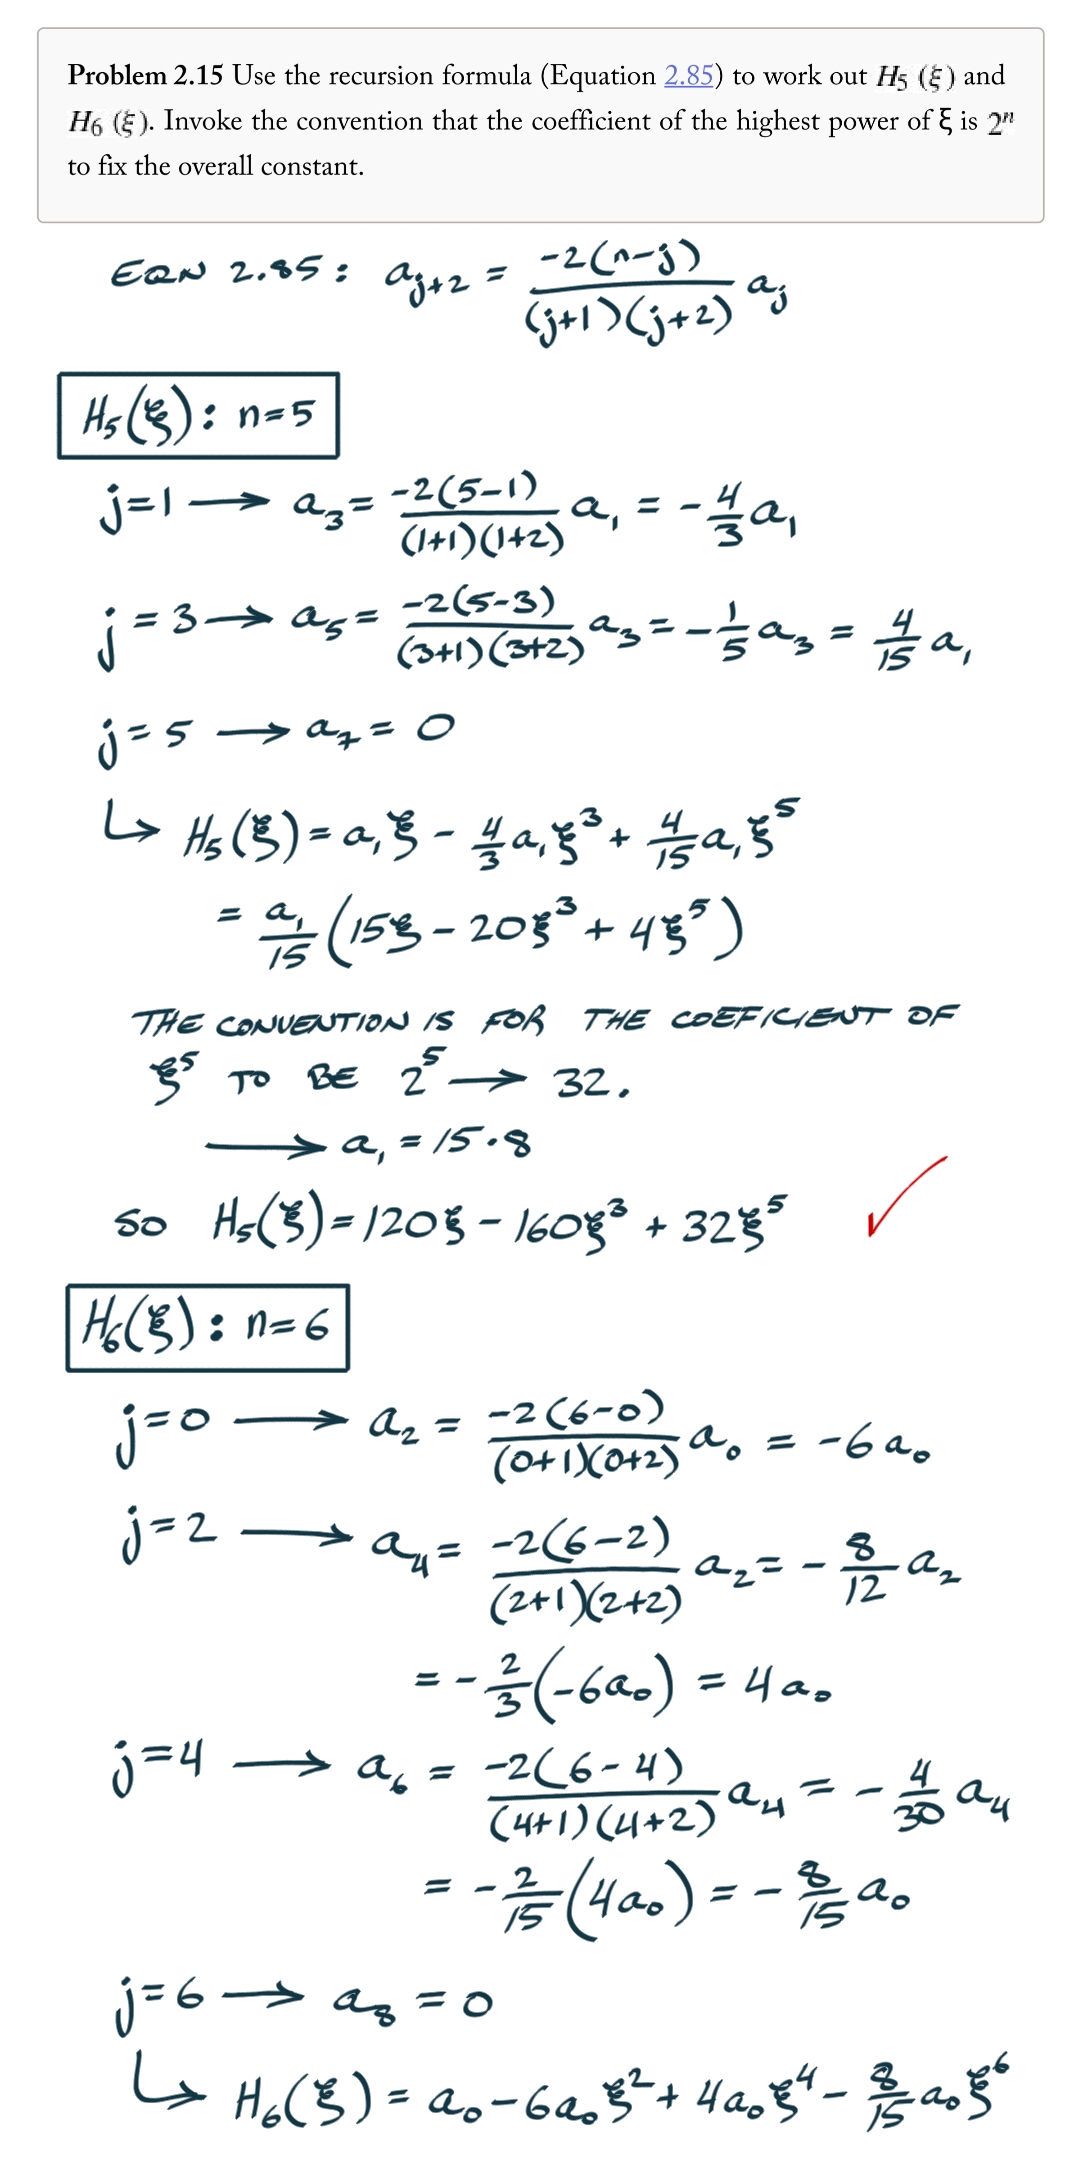 Problem 2.15 Use the recursion formula (Equation 2.85) to work out H₅ (ξ) and
H₆ (ξ). Invoke the convention that the coefficient of the highest power of ξ is 2ⁿ
to fix the overall constant.
EQN 2.85: a_{j+2} = \frac{-2(n-j)}{(j+1)(j+2)} a_j
H₅(ξ): n=5
j=1 → a₃ = \frac{-2(5-1)}{(1+1)(1+2)} a₁ = -\frac{4}{3} a₁
j=3 → a₅ = \frac{-2(5-3)}{(3+1)(3+2)} a₃ = -\frac{1}{5} a₃ = \frac{4}{15} a₁
j=5 → a₇ = 0
↳ H₅(ξ) = a₁ξ - \frac{4}{3} a₁ξ³ + \frac{4}{15} a₁ξ⁵
= \frac{a₁}{15} (15ξ - 20ξ³ + 4ξ⁵)
THE CONVENTION IS FOR THE COEFICIENT OF
ξ⁵ TO BE 2⁵ → 32.
→ a₁ = 15·8
SO H₅(ξ) = 120ξ - 160ξ³ + 32ξ⁵ ✓
H₆(ξ): n=6
j=0 → a₂ = \frac{-2(6-0)}{(0+1)(0+2)} a₀ = -6a₀
j=2 → a₄ = \frac{-2(6-2)}{(2+1)(2+2)} a₂ = -\frac{8}{12} a₂
= -\frac{2}{3} (-6a₀) = 4a₀
j=4 → a₆ = \frac{-2(6-4)}{(4+1)(4+2)} a₄ = -\frac{4}{30} a₄
= -\frac{2}{15} (4a₀) = -\frac{8}{15} a₀
j=6 → a₈ = 0
↳ H₆(ξ) = a₀ - 6a₀ξ² + 4a₀ξ⁴ - \frac{8}{15} a₀ξ⁶